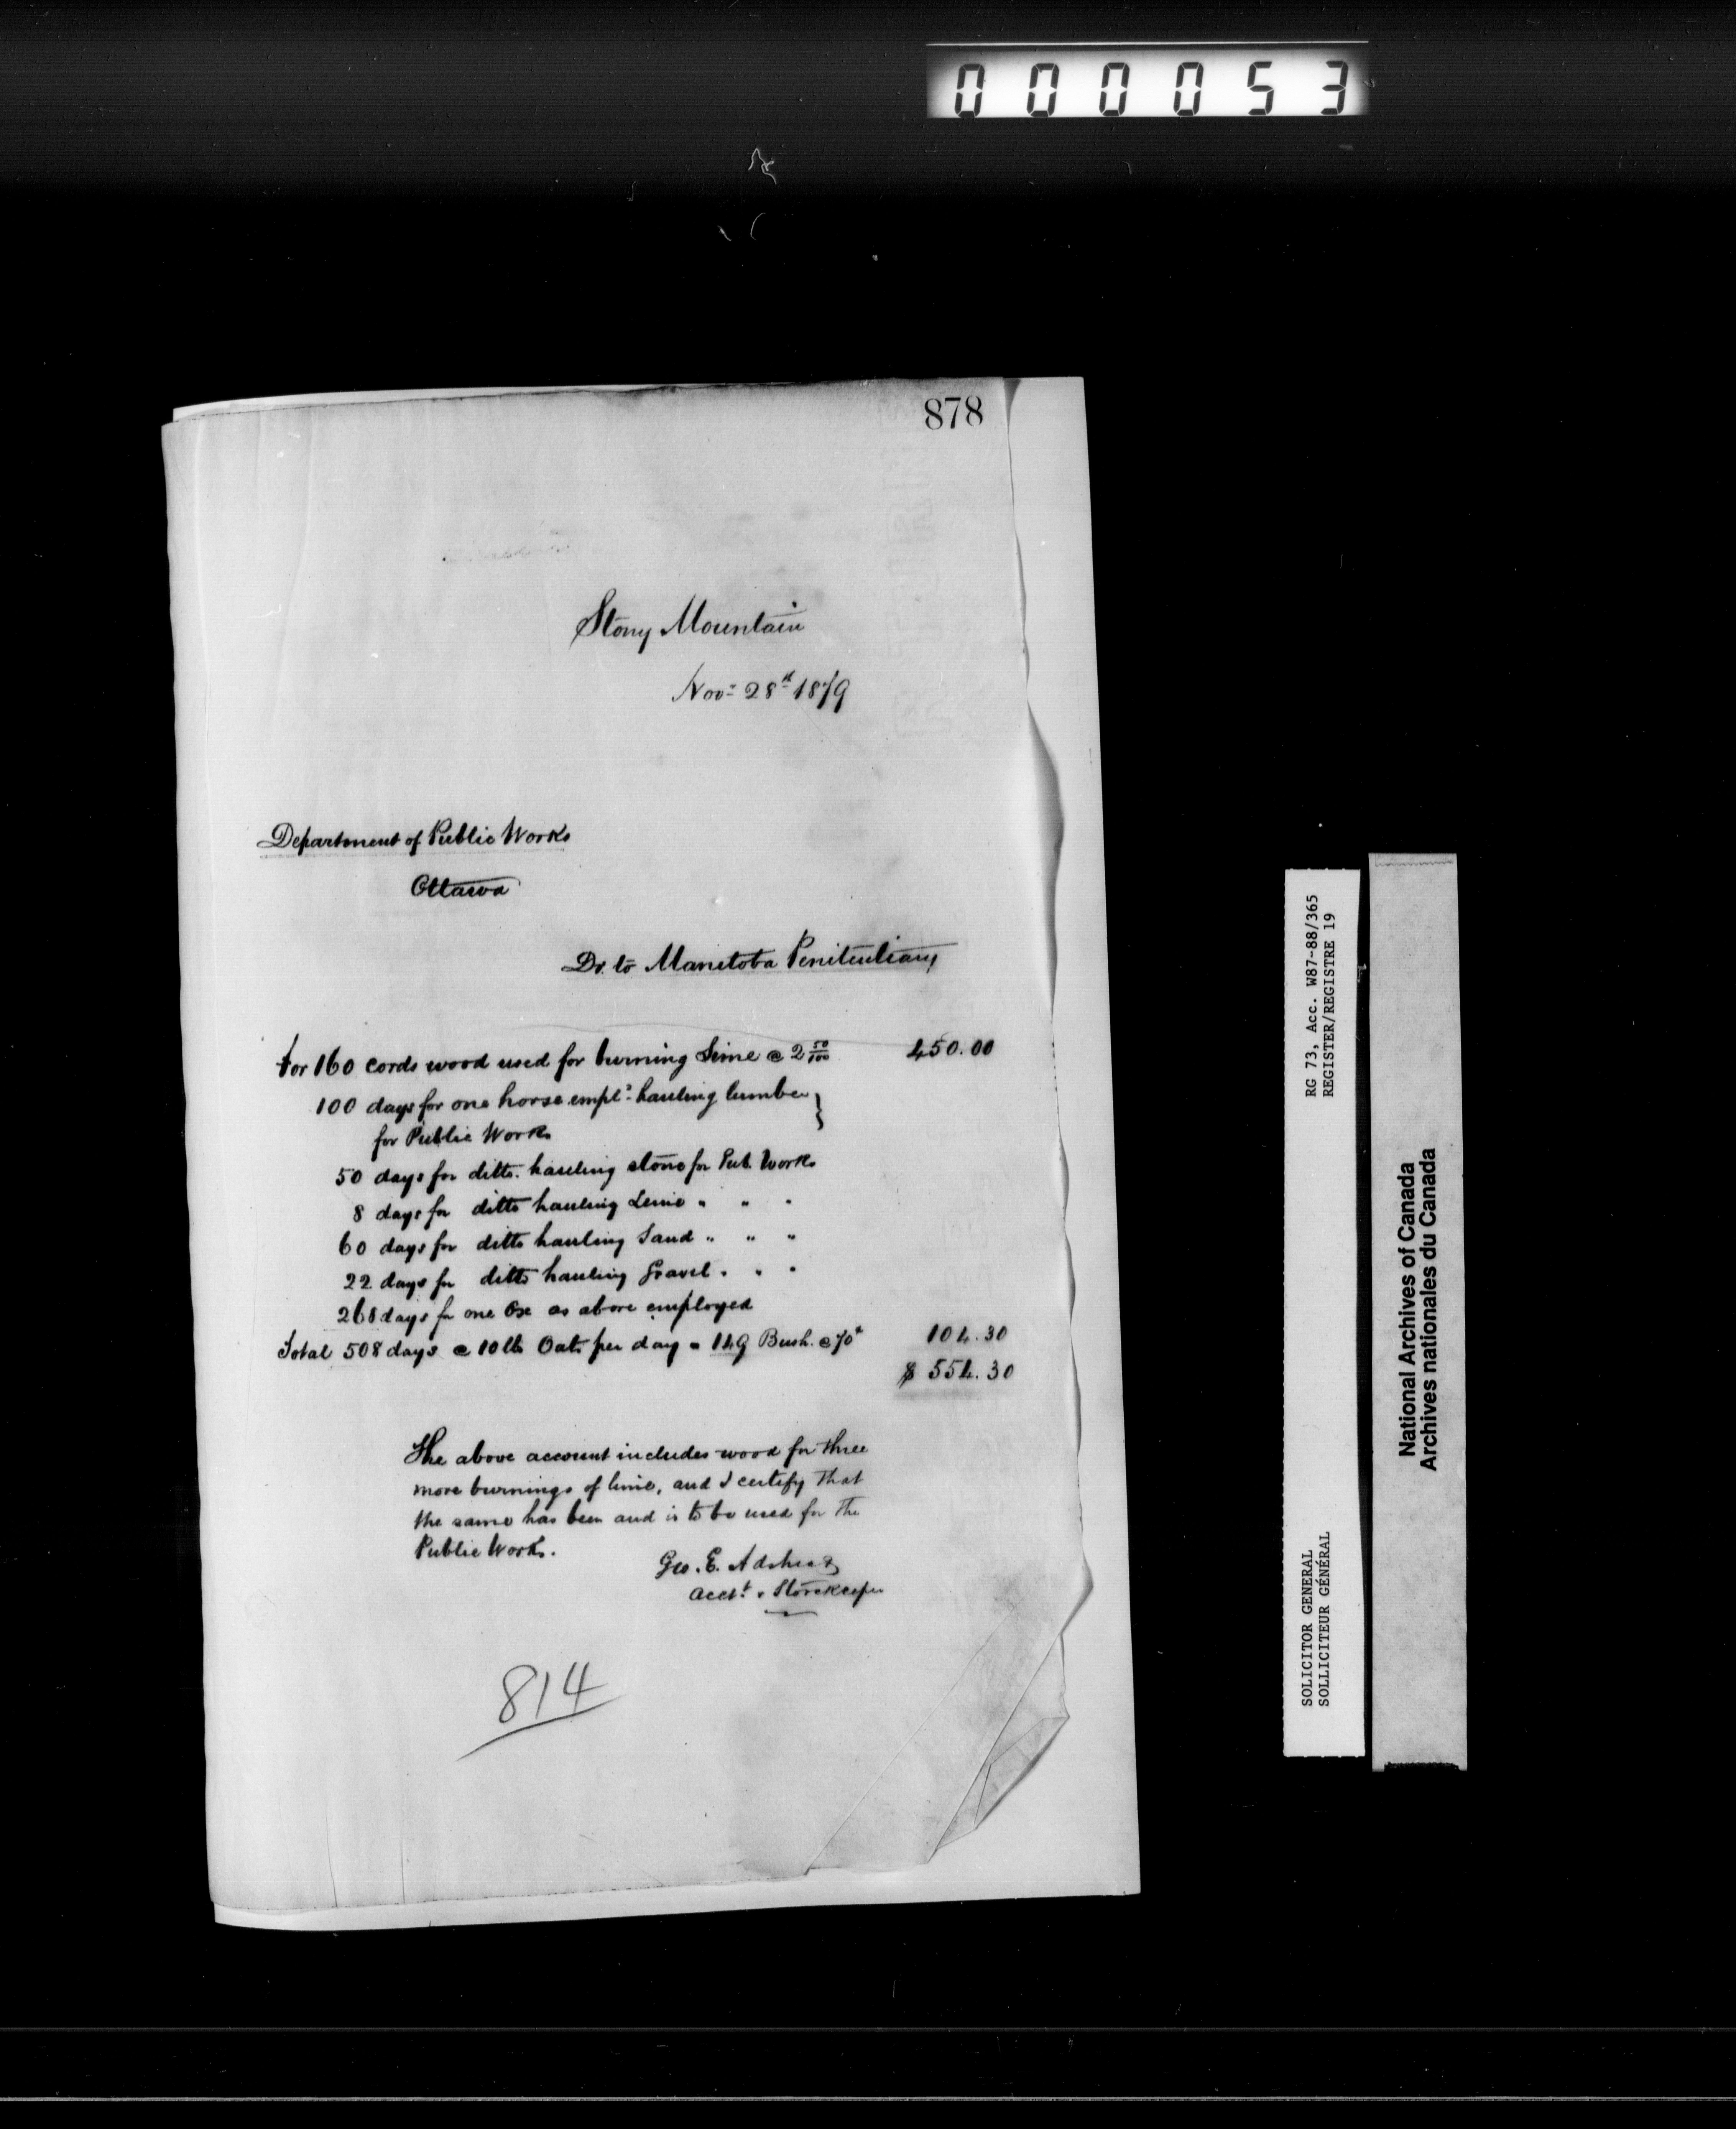 000053
878
Stony Mountain
Nov: 28th 1879
Department of Public Works
Ottawa
Dr. to Manitoba Penitentiary
For 160 cords wood used for burning Lime @ 2 50/100 450.00
100 days for one horse empld: hauling lumber
for Public Works
50 days for ditto. hauling stone for Pub. Works
8 days for ditto hauling Lime " " "
60 days for ditto hauling Sand " " "
22 days for ditto hauling Gravel " " "
268 days for one Ox as above employed
Total 508 days @ 10 lb Oats per day = 149 Bush. @ 70c 104.30
$ 554.30
The above account includes wood for three
more burnings of lime, and I certify that
the same has been and is to be used for the
Public Works.
Geo. E. Adshead
Acct. & Storekeeper
814
RG 73, Acc. W87-88/365
REGISTER/REGISTRE 19
SOLICITOR GENERAL
SOLLICITEUR GÉNÉRAL
National Archives of Canada
Archives nationales du Canada